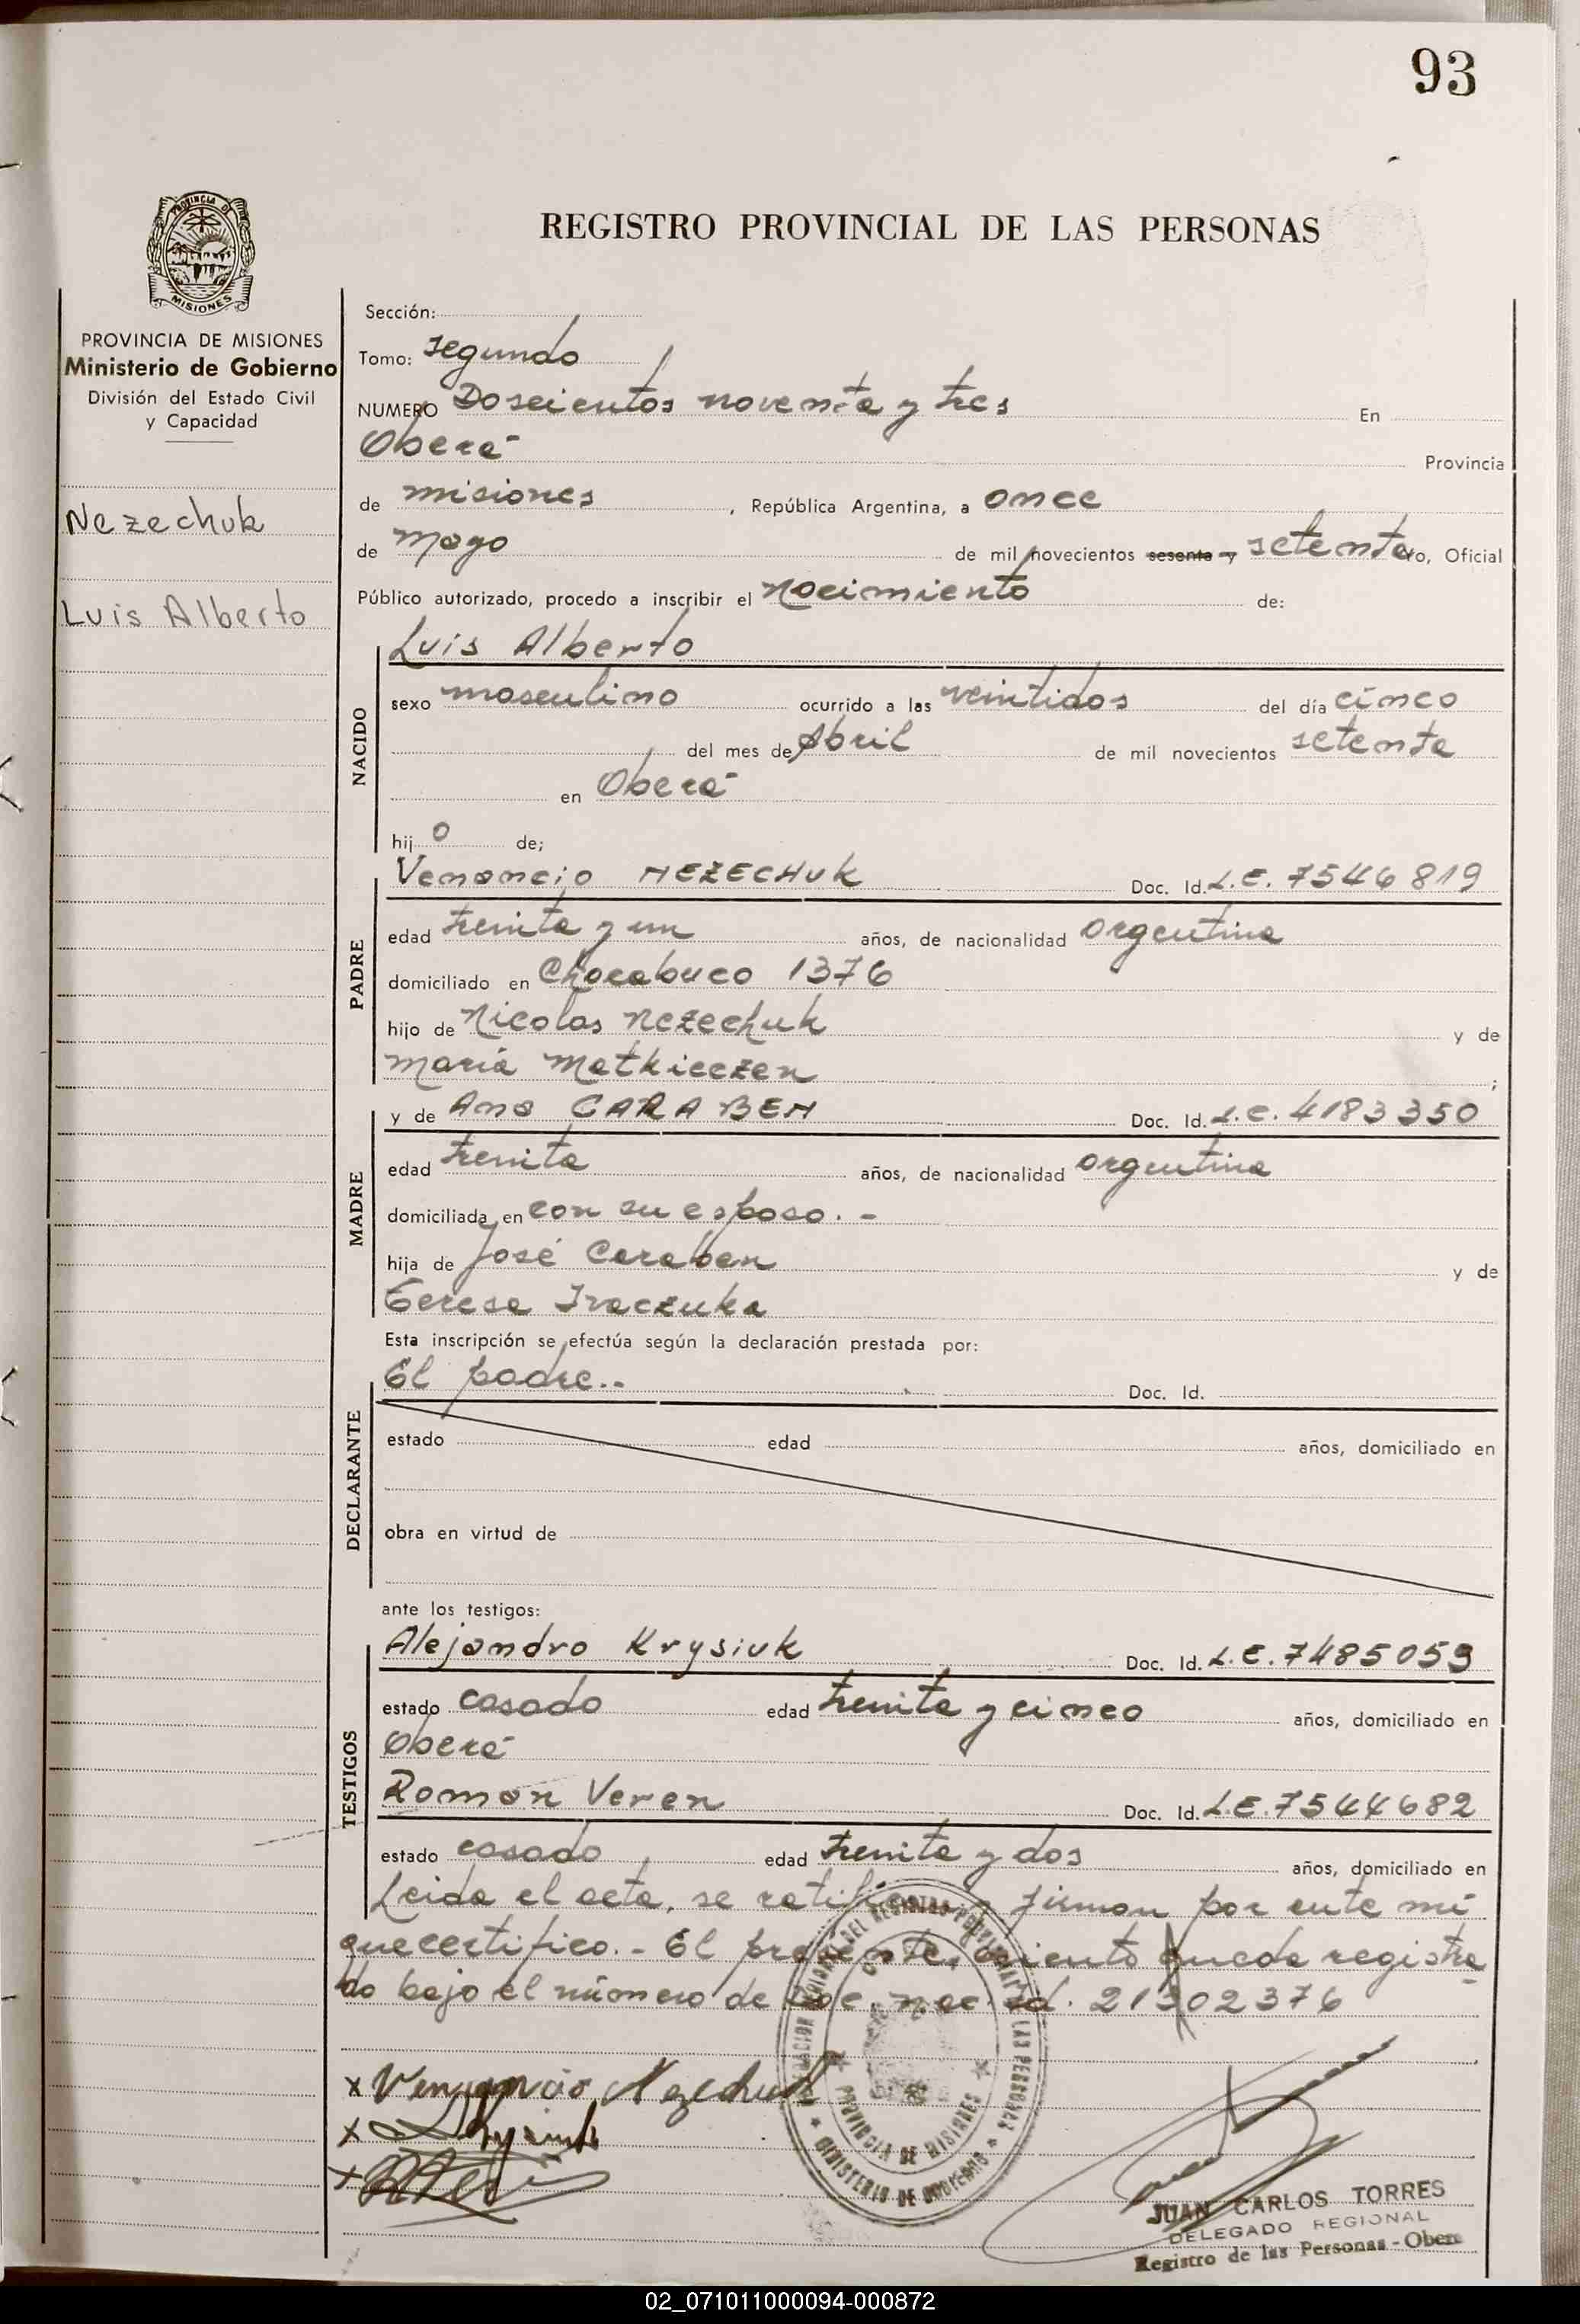 93
PROVINCIA DE
MISIONES
REGISTRO PROVINCIAL DE LAS PERSONAS
PROVINCIA DE MISIONES
Ministerio de Gobierno
División del Estado Civil
y Capacidad
Nezechuk
Luis Alberto
Sección:
Tomo: segundo
NUMERO Doscientos noventa y tres En
Oberá Provincia
de misiones , República Argentina, a once
de mayo de mil novecientos sesenta y setenta yo, Oficial
Público autorizado, procedo a inscribir el nacimiento de:
Luis Alberto
NACIDO
sexo masculino ocurrido a las veintidos del día cinco
del mes de Abril de mil novecientos setenta
en Oberá
hij o de;
Venancio NEZECHUK Doc. Id. L.E. 7546819
PADRE
edad treinta y un años, de nacionalidad argentina
domiciliado en Chacabuco 1376
hijo de Nicolas Nezechuk y de
María Matkieczen ;
y de Ana CARABEN Doc. Id. L.C. 4183350
MADRE
edad treinta años, de nacionalidad argentina
domiciliada en con su esposo. -
hija de José Caraben y de
Teresa Iraczuka
Esta inscripción se efectúa según la declaración prestada por:
El padre.- Doc. Id.
DECLARANTE
estado edad años, domiciliado en
obra en virtud de
ante los testigos:
Alejandro Krysiuk Doc. Id. L.E. 7485059
TESTIGOS
estado casado edad treinta y cinco años, domiciliado en
Oberá
Roman Veren Doc. Id. L.E. 7544682
estado casado edad treinta y dos años, domiciliado en
Leida el acta, se ratifican y firman por ante mi
que certifico.- El presente nacimiento queda registra
do bajo el número de Doc. nac. id. 21302376
x Venancio Nezechuk
x
x
PROVINCIA DE MISIONES
MINISTERIO DE GOBIERNO
JUAN CARLOS TORRES
DELEGADO REGIONAL
Registro de las Personas - Oberá
02_071011000094-000872